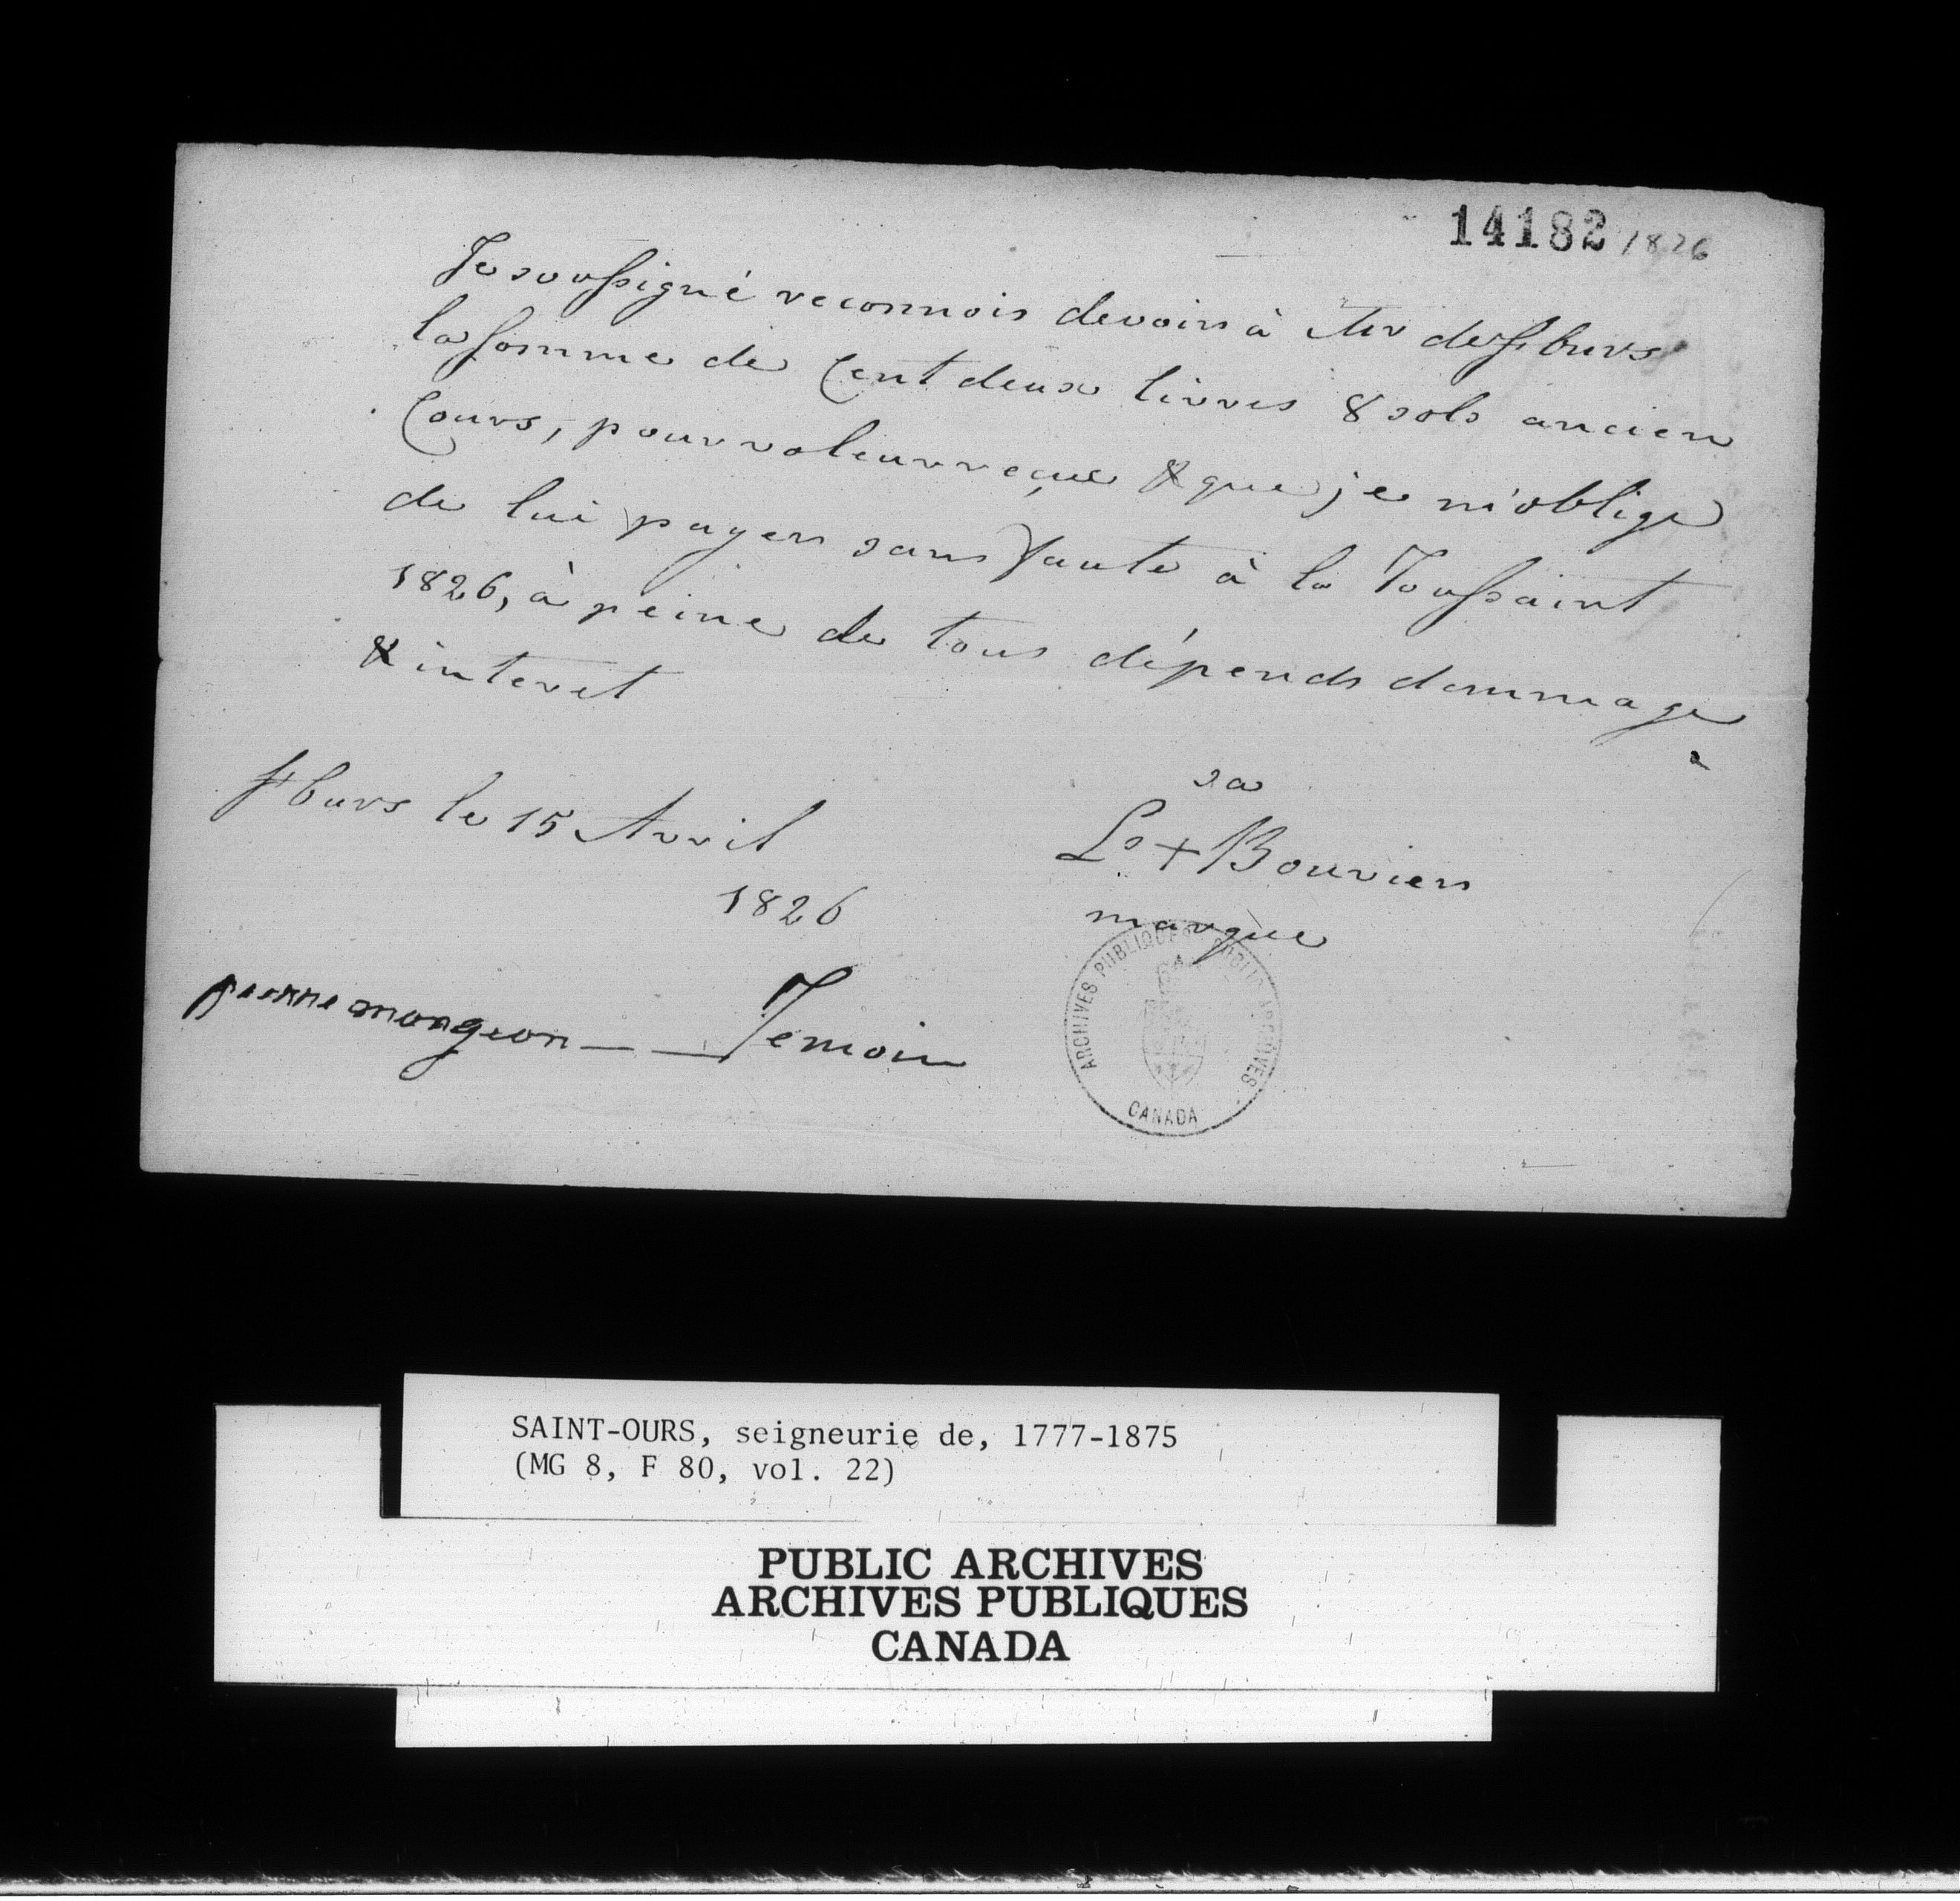 14182 1826
Je soussigné reconnois devoir à Mr de St Ours
la somme de Cent deux livres 8 sols ancien
Cours, pour valeur reçue & que je m'oblige
de lui payer sans faute à la Toussaint
1826, à peine de tous dépends dommage
& interet
St Ours le 15 Avril
1826
sa
Ls + Bouvier
marque
pierre mongeon — — Temoin
ARCHIVES PUBLIQUES PUBLIC ARCHIVES
CANADA
SAINT-OURS, seigneurie de, 1777-1875
(MG 8, F 80, vol. 22)
PUBLIC ARCHIVES
ARCHIVES PUBLIQUES
CANADA